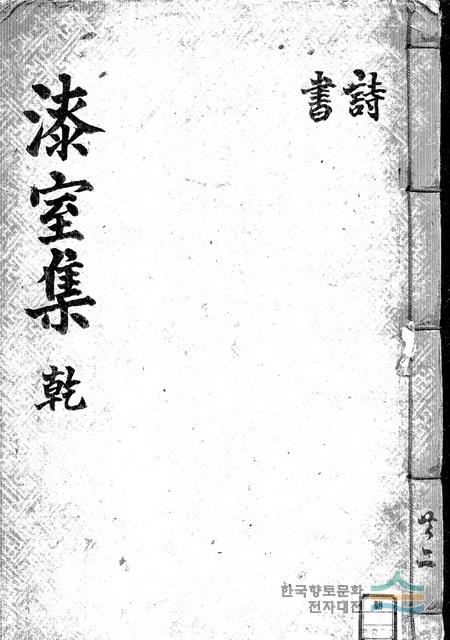 詩
書
漆室集 乾
共二
한국향토문화
전자대전